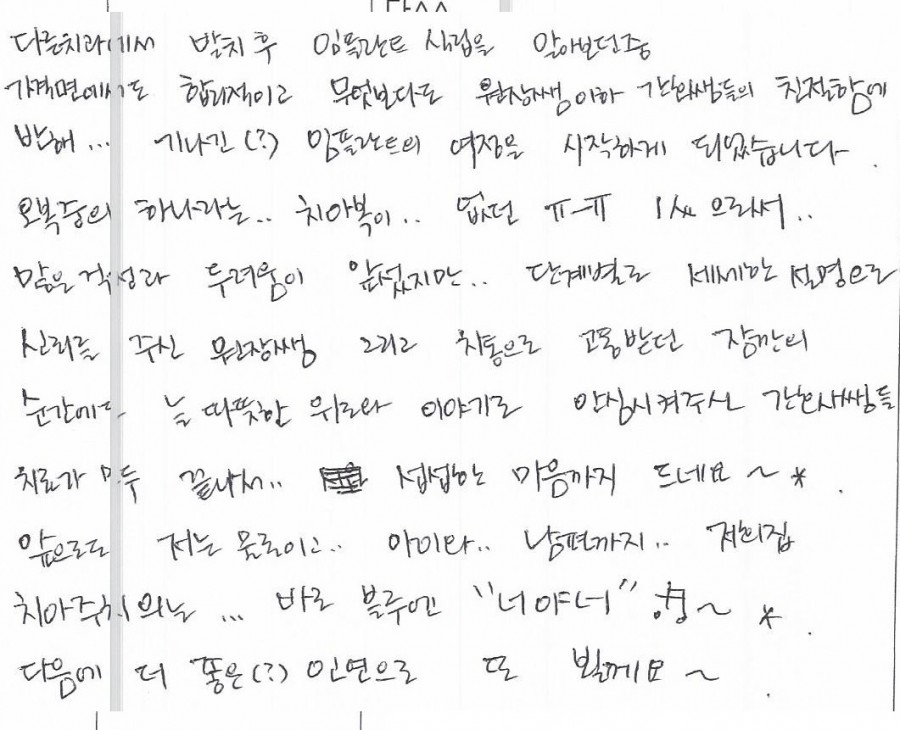 다른치과에서 발치 후 임플란트 식립을 알아보던중
가격면에서도 합리적이고 무엇보다도 원장쌤이하 간호쌤들의 친절함에
반해... 기나긴(?) 임플란트의 여정을 시작하게 되었습니다.
오복중의 하나라는.. 치아복이.. 없던 ㅠ-ㅠ 1人 으로써..
많은 걱정과 두려움이 앞섰지만.. 단계별로 세세한 설명으로
신뢰를 주신 원장쌤 그리고 치통으로 고통받던 잠깐의
순간에도 늘 따뜻한 위로와 이야기로 안심시켜주신 간호사쌤들
치료가 모두 끝나서.. 섭섭한 마음까지 드네요~*.
앞으로도 저는 물론이고.. 아이와.. 남편까지.. 저희집
치아주치의는 ... 바로 블루에 "너야너" ~*.
다음에 더 좋은(?) 인연으로 또 뵐께요~.